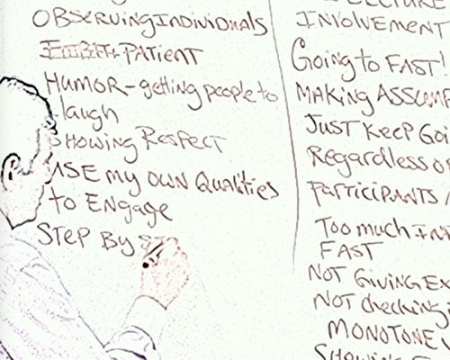 OBSERVING INDIVIDUALS
PATIENT
HUMOR - getting people to
laugh
SHOWING RESPECT
USE my OWN Qualities
to ENgage
STEP By
LECTURE
INVOLVEMENT
Going to FAST!
MAKING
JUST KEEP
Regardless
PARTICIPANTS
Too much
FAST
NOT GIVING
NOT checking
MONOTONE
SHOWING